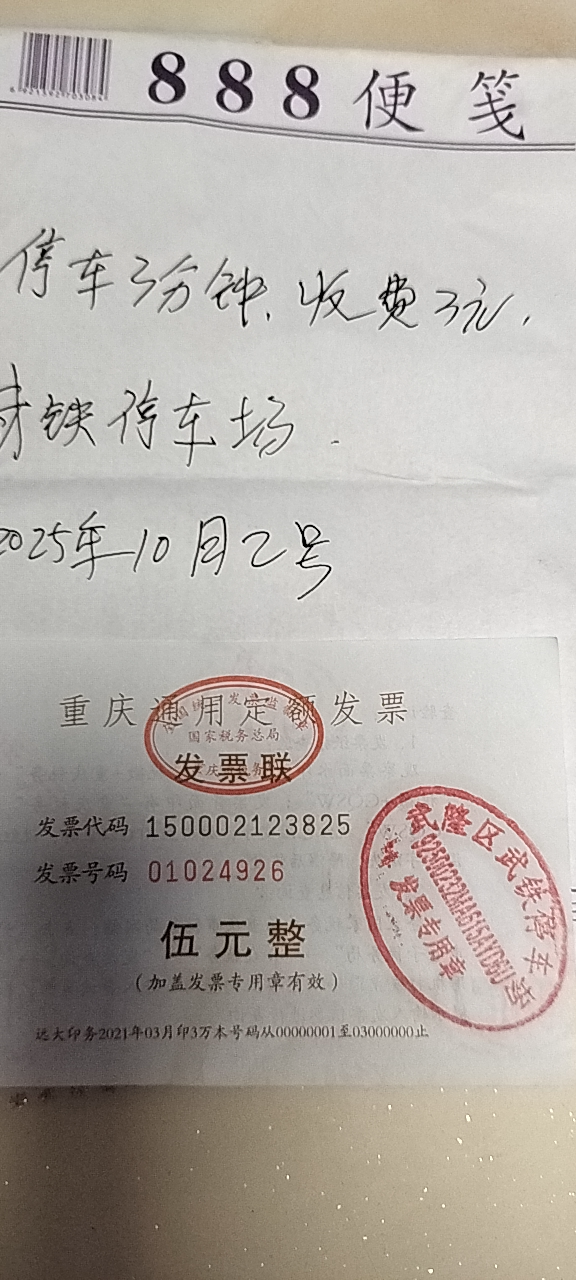 888便笺
停车3分钟,收费3元.
铁停车场.
2025年10月2号
重庆通用定额发票
国家税务总局
发票联
发票代码 150002123825
发票号码 01024926
伍元整
(加盖发票专用章有效)
远大印务2021年03月印3万本号码从00000001至03000000止
武隆区武铁停车场
发票专用章